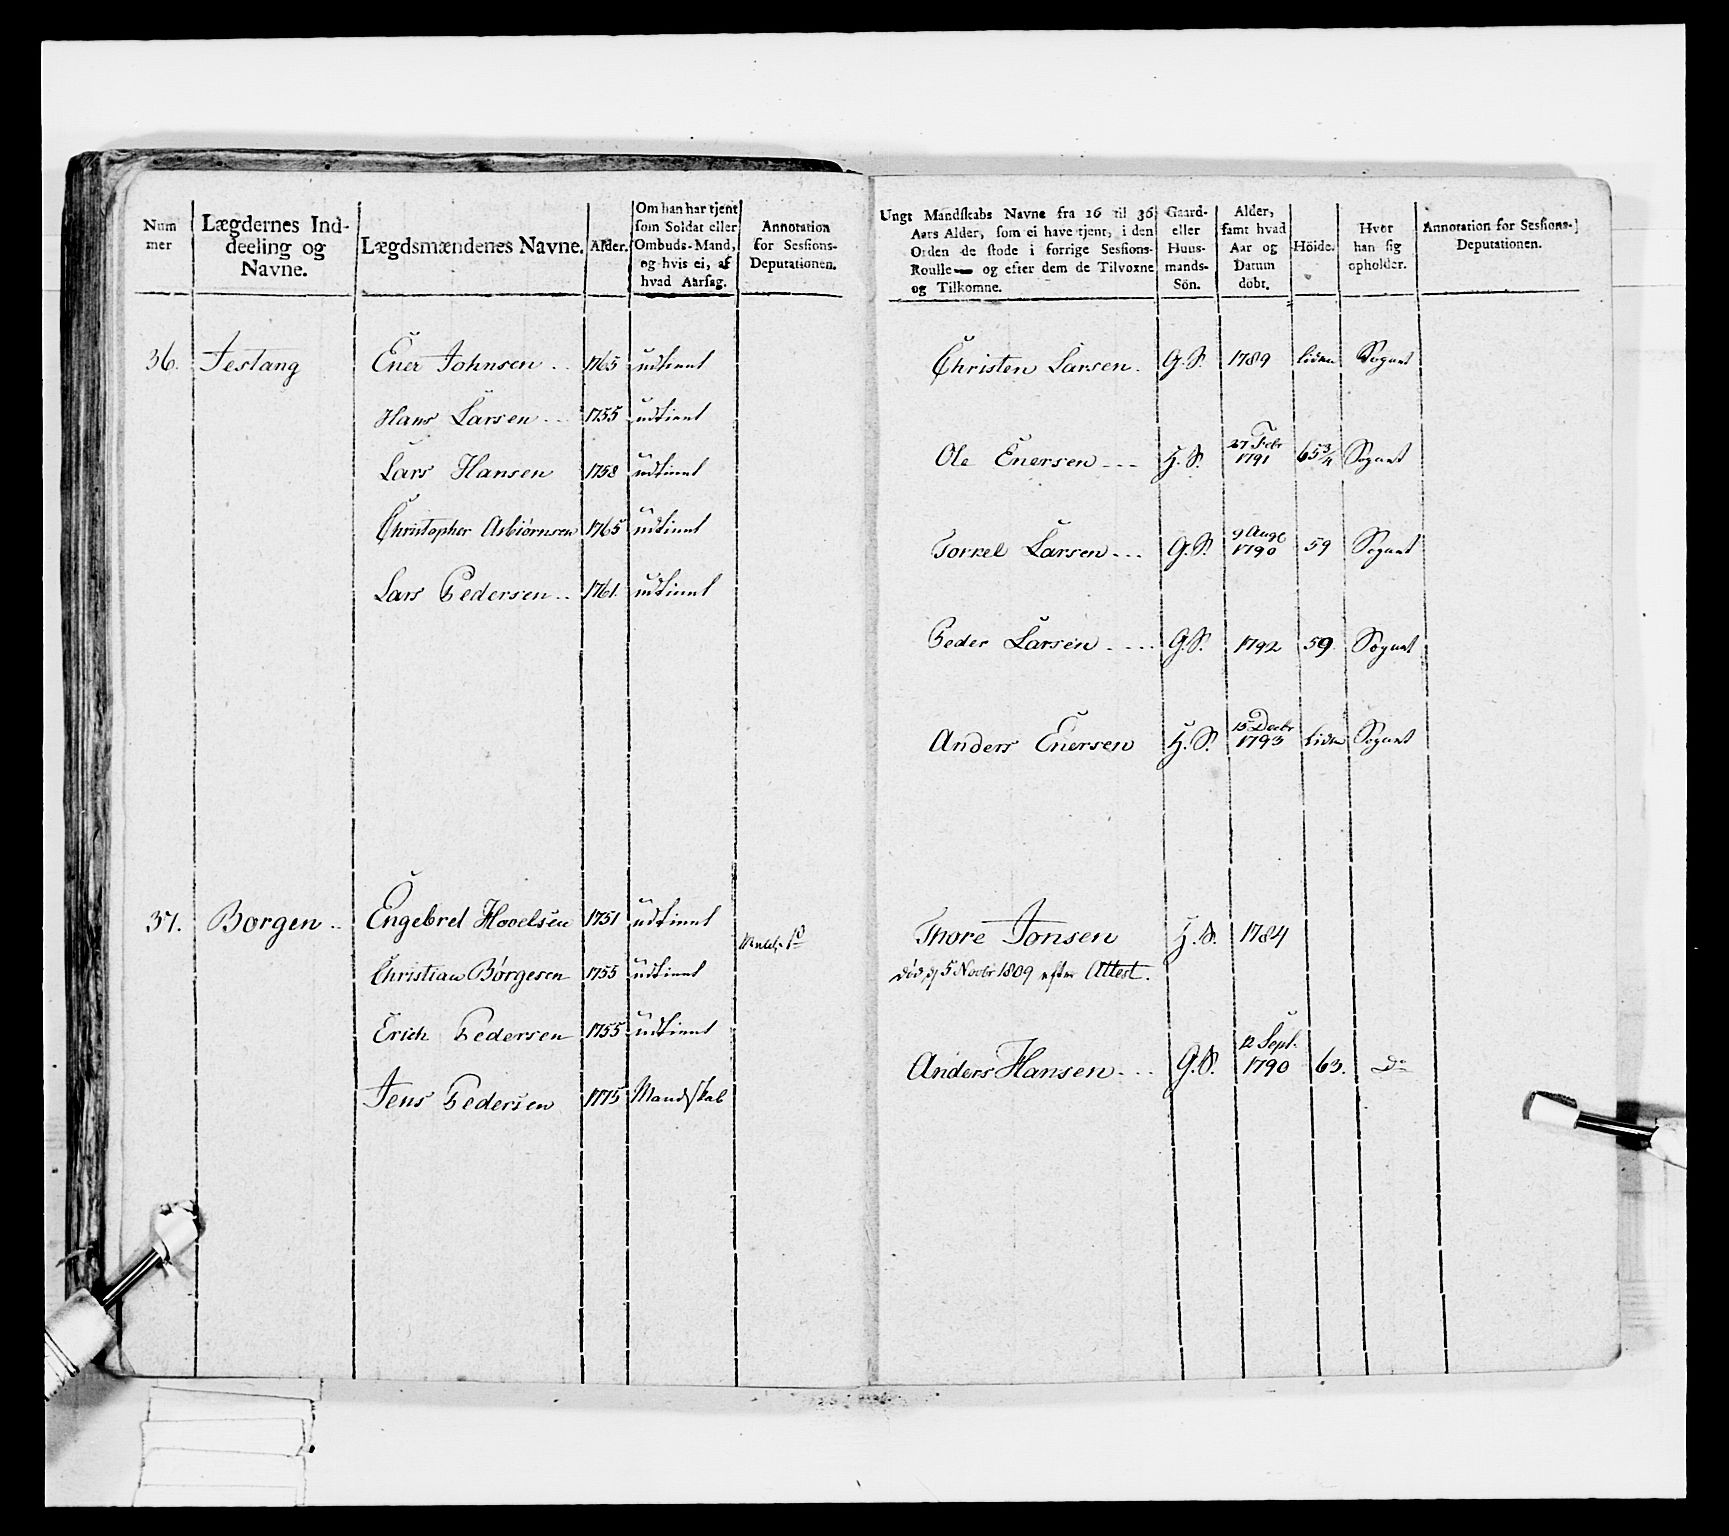 Num
mer
Lægdernes Ind-
deeling og
Navne.
Lægdsmændenes Navne.
Alder.
Om han har tjent
som Soldat eller
Ombuds-Mand,
og hvis ei, af
hvad Aarsag.
Annotation
for Sesfions-
Deputationen.
36. Jestang Ener Johnsen .. 1765 udtient
Hans Larsen ... 1755 udtient
Lars Hansen 1758 udtient
Christopher Asbiørnsen 1765 udtient
Lars Pedersen .. 1761. udtient
37. Borgen .. Engebret Hovelsen 1751 udtient
Christian Børgesen 1755 udtient
Erich Pedersen 1755 udtient
Jens Pedersen 1775 Mandskab
Ungt Mandskabs Navne fra 16 til 36
Aars Alder, som ei have tjent, i den
Orden de stode i forrige Sesfions-
Roulle— og efter dem de Tilvoxne
og Tilkomne.
Gaard-
eller
Huus-
mands-
Sön.
Alder,
samt hvad
Aar og
Datum
döbt.
Höide.
Hvor
han sig
opholder.
Annotation for Sesfions-
Deputationen.
Christen Larsen. G.S. 1789 liden Sognet
27 Febr
Ole Enersen --- H.S. 1791 65¾ Sognet
9 Augt
Torkel Larsen --- G.S. 1790 59 Sognet
Peder Larsen ---- G.S. 1792 59 Sognet
15 Decbr
Anders Enersen H.S. 1793 liden Sognet
Thore Jonsen H.S. 1784
død d 5 Novbr 1809 efter Attest.
12 Sept.
Anders Hansen --- G.S. 1790 63. do